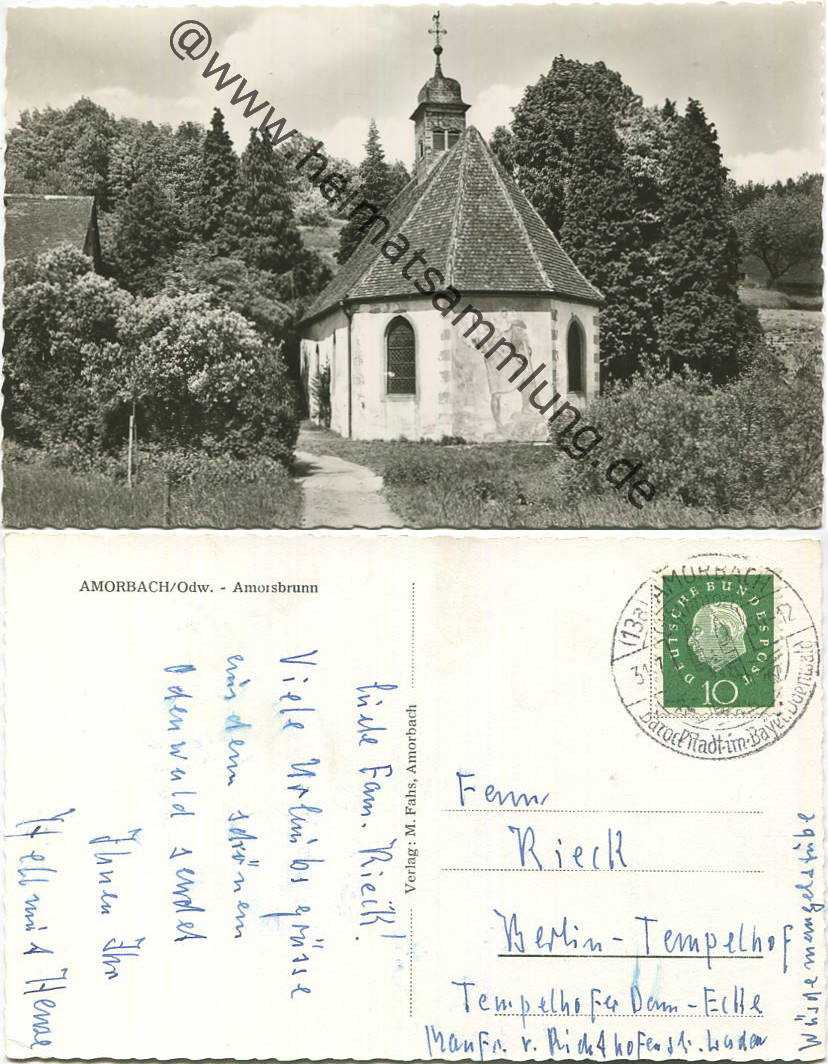 @www.heimatsammlung.de
AMORBACH/Odw. - Amorsbrunn
Liebe Fam. Rieck!
Viele Urlaubsgrüsse
aus dem schönen
Odenwald sendet
Ihnen Ihr
Hellmut
Verlag: M. Fahs, Amorbach
(13a) AMORBACH
31.
12
Barockstadt im Bayer. Odenwald
DEUTSCHE BUNDESPOST
10
Rieck
Berlin-Tempelhof
Tempelhofer Damm-Ecke
Manfr. v. Richthofenstr.